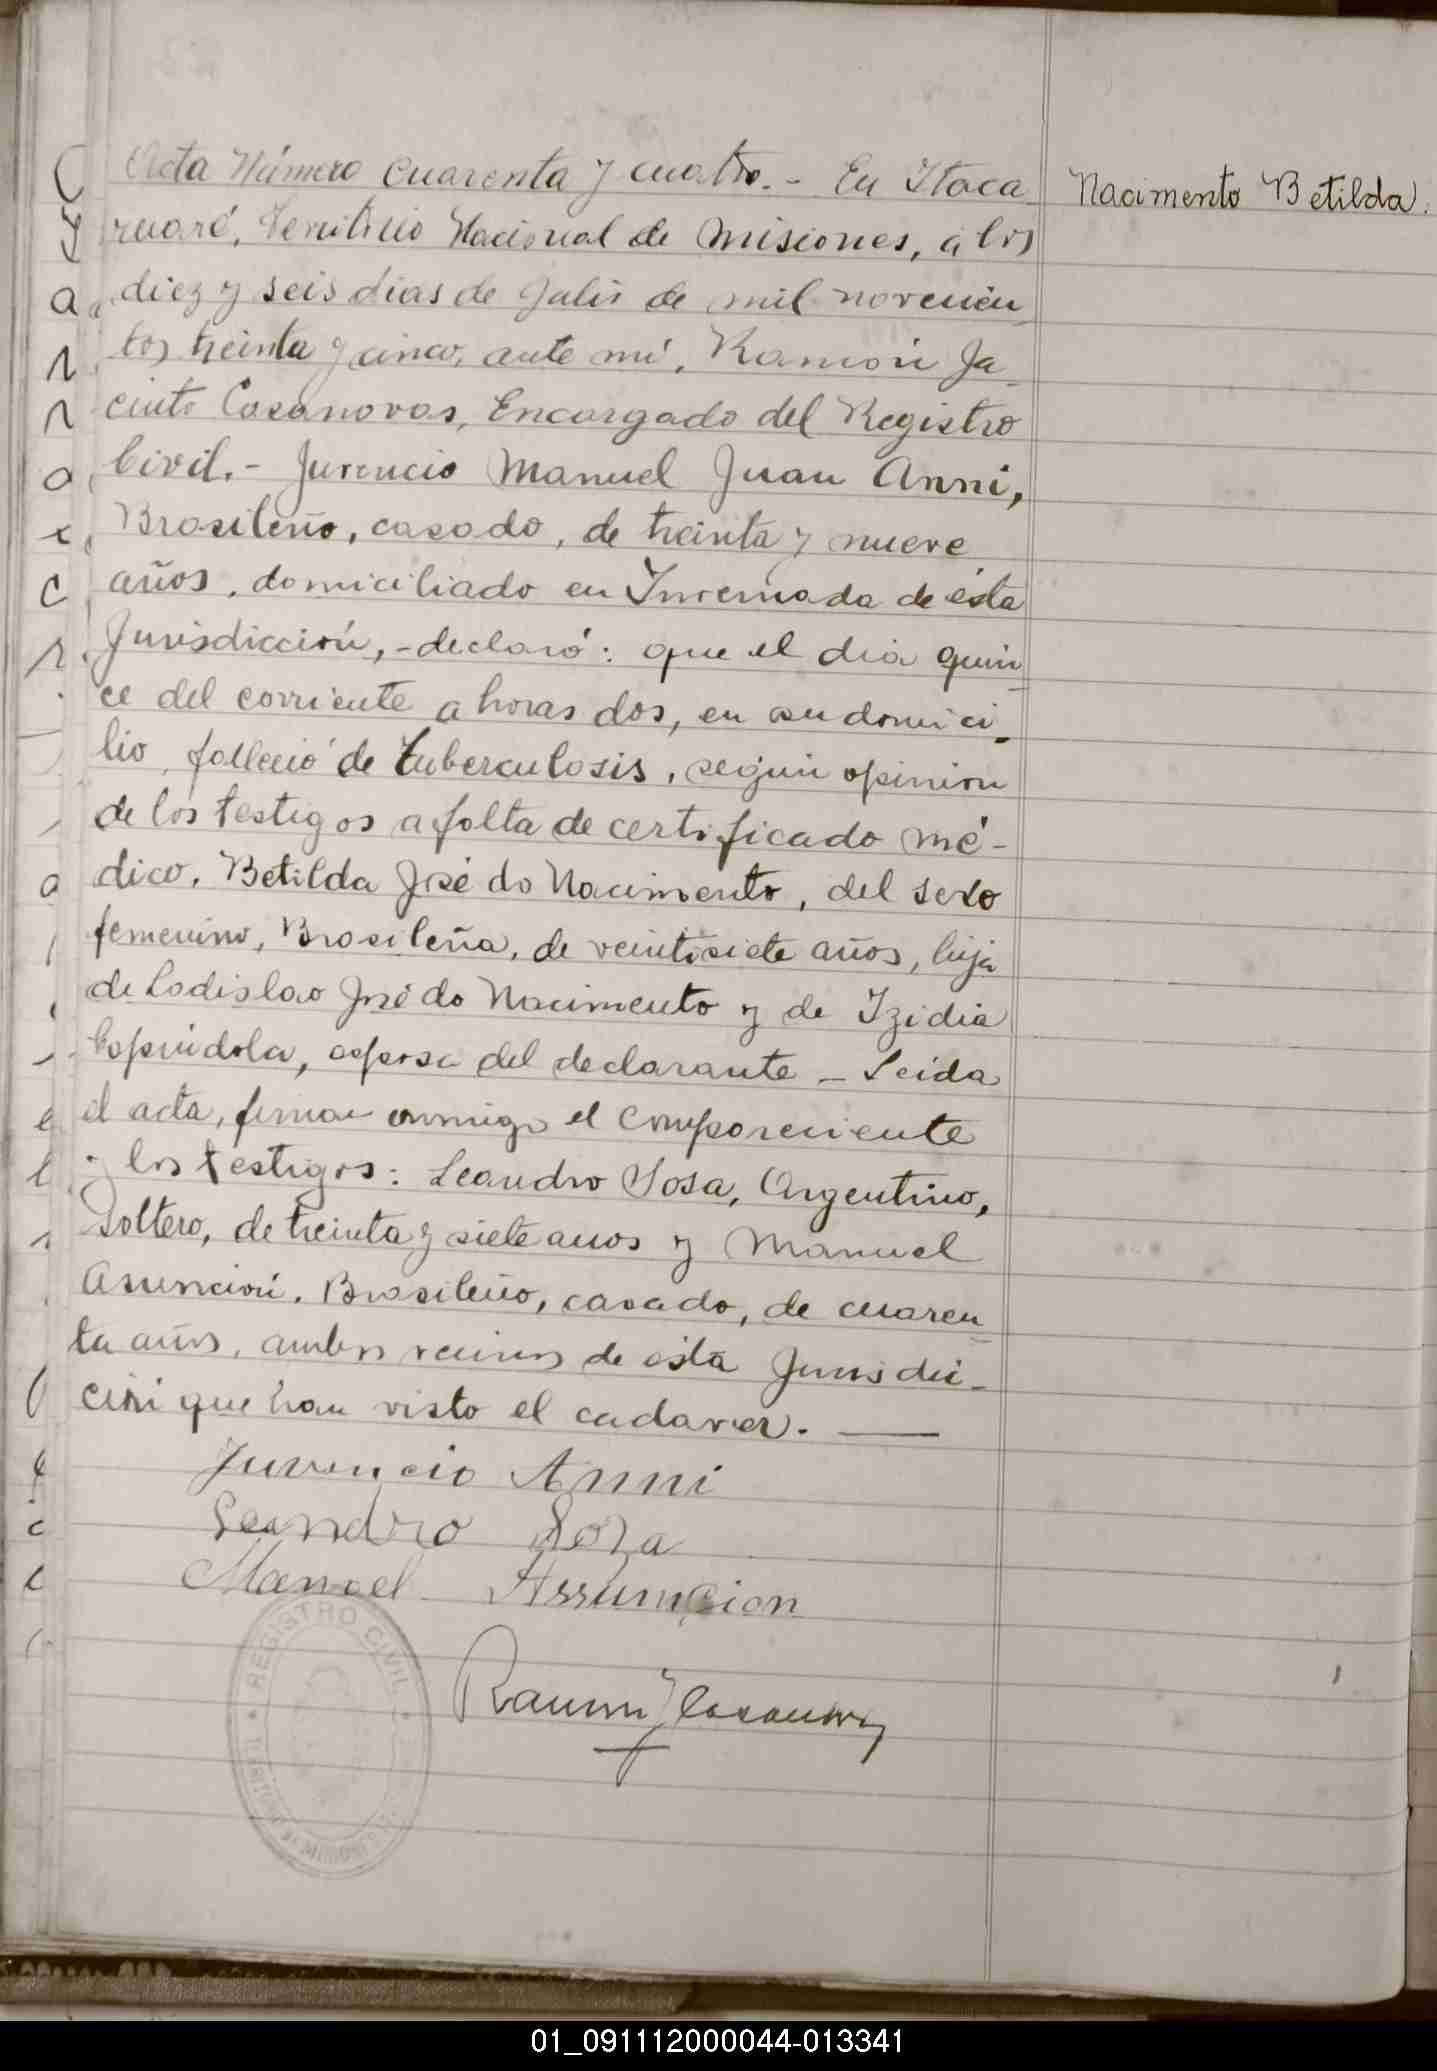 Acta Número cuarenta y cuatro.- En Itaca
ruaré, Territorio Nacional de Misiones, a los
diez y seis días de Julio de mil novecien
tos treinta y cinco, ante mí, Ramón Ja
cinto Casanovas, Encargado del Registro
Civil.- Juvencio Manuel Juan Anni,
Brasileño, casado, de treinta y nueve
años, domiciliado en Invernada de ésta
Jurisdicción,-declaró: que el día quin
ce del corriente a horas dos, en su domici
lio, falleció de tuberculosis, según opinión
de los testigos a falta de certificado mé-
dico, Betilda José do Nacimento, del sexo
femenino, Brasileña, de veintisiete años, hija
de Ladislao José do Nacimento y de Izidia
Espíndola, esposa del declarante - Leída
el acta, firman conmigo el compareciente
y los testigos: Leandro Sosa, Argentino,
soltero, de treinta y siete años y Manuel
Asunción, Brasileño, casado, de cuaren
ta años, ambos vecinos de ésta Jurisdic-
ción que han visto el cadaver.
Juvencio Anni
Leandro Soza
Manoel Assumcion
Ramón J Casanovas
REGISTRO CIVIL
Nacimento Betilda.
01_091112000044-013341